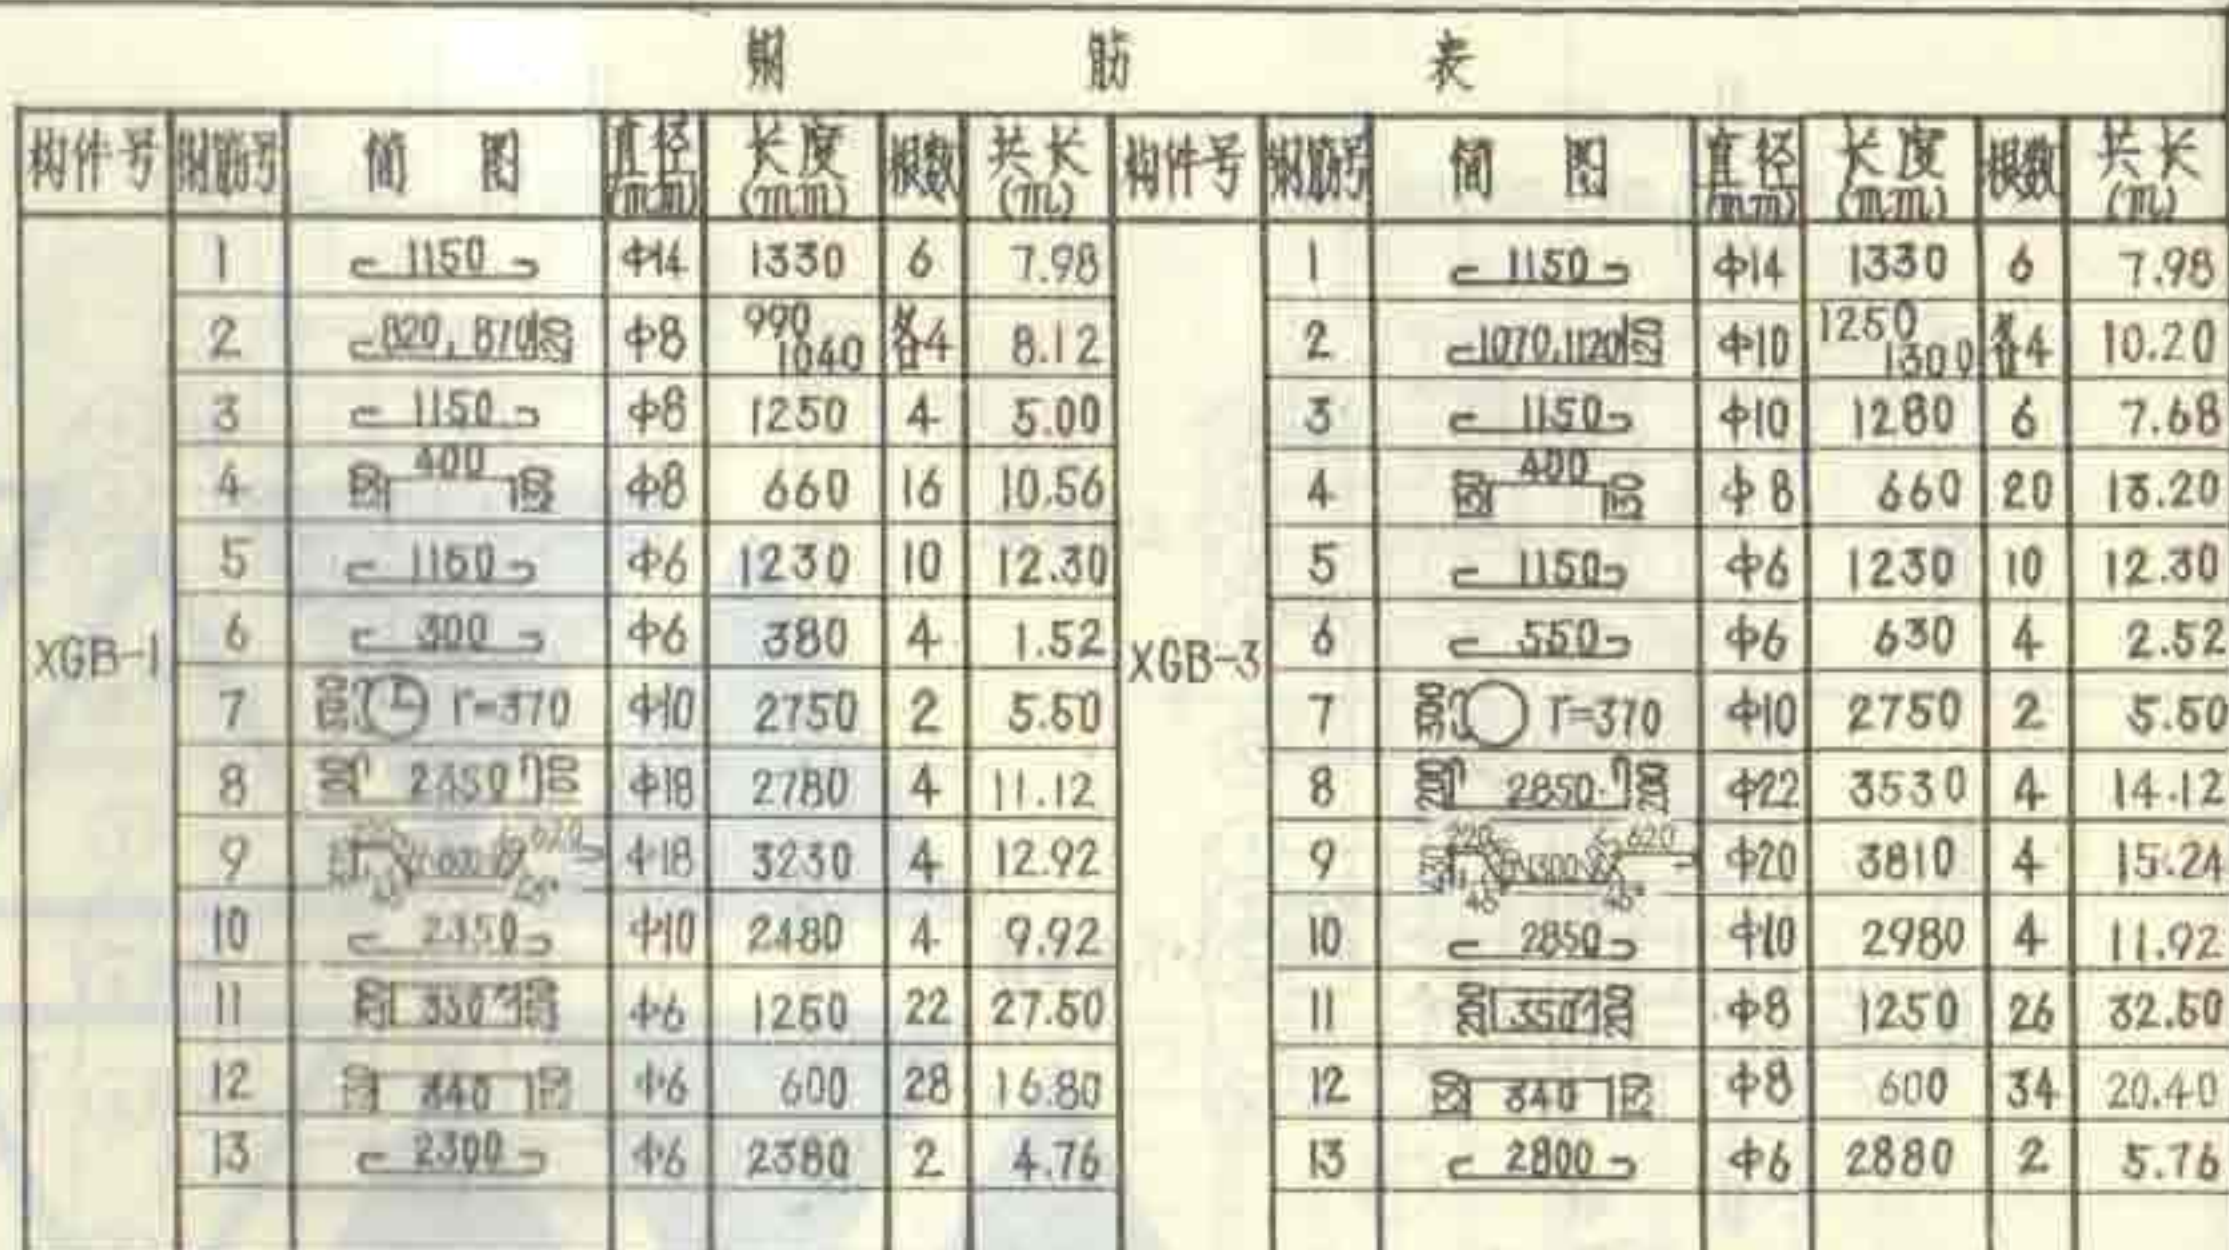 钢筋表
构件号 钢筋号 简图 直径(mm) 长度(mm) 根数 共长(m) 构件号 钢筋号 简图 直径(mm) 长度(mm) 根数 共长(m)
XGB-1 XGB-3
1 1150 Φ14 1330 6 7.98 1 1150 Φ14 1330 6 7.98
2 820,870 120 Φ8 990 1040 各4 8.12 2 1070,1120 120 Φ10 1250 1300 各4 10.20
3 1150 Φ8 1250 4 5.00 3 1150 Φ10 1280 6 7.68
4 400 Φ8 660 16 10.56 4 130 400 130 Φ8 660 20 13.20
5 1150 Φ6 1230 10 12.30 5 1150 Φ6 1230 10 12.30
6 300 Φ6 380 4 1.52 6 550 Φ6 630 4 2.52
7 r=370 Φ10 2750 2 5.50 7 300 r=370 Φ10 2750 2 5.50
8 100 2350 100 Φ18 2780 4 11.12 8 200 2850 200 Φ22 3530 4 14.12
9 620 Φ18 3230 4 12.92 9 220 1300 620 45° 45° Φ20 3810 4 15.24
10 2350 Φ10 2480 4 9.92 10 2850 Φ10 2980 4 11.92
11 350 Φ6 1250 22 27.50 11 200 350 200 Φ8 1250 26 32.50
12 340 Φ6 600 28 16.80 12 340 Φ8 600 34 20.40
13 2300 Φ6 2380 2 4.76 13 2800 Φ6 2880 2 5.76